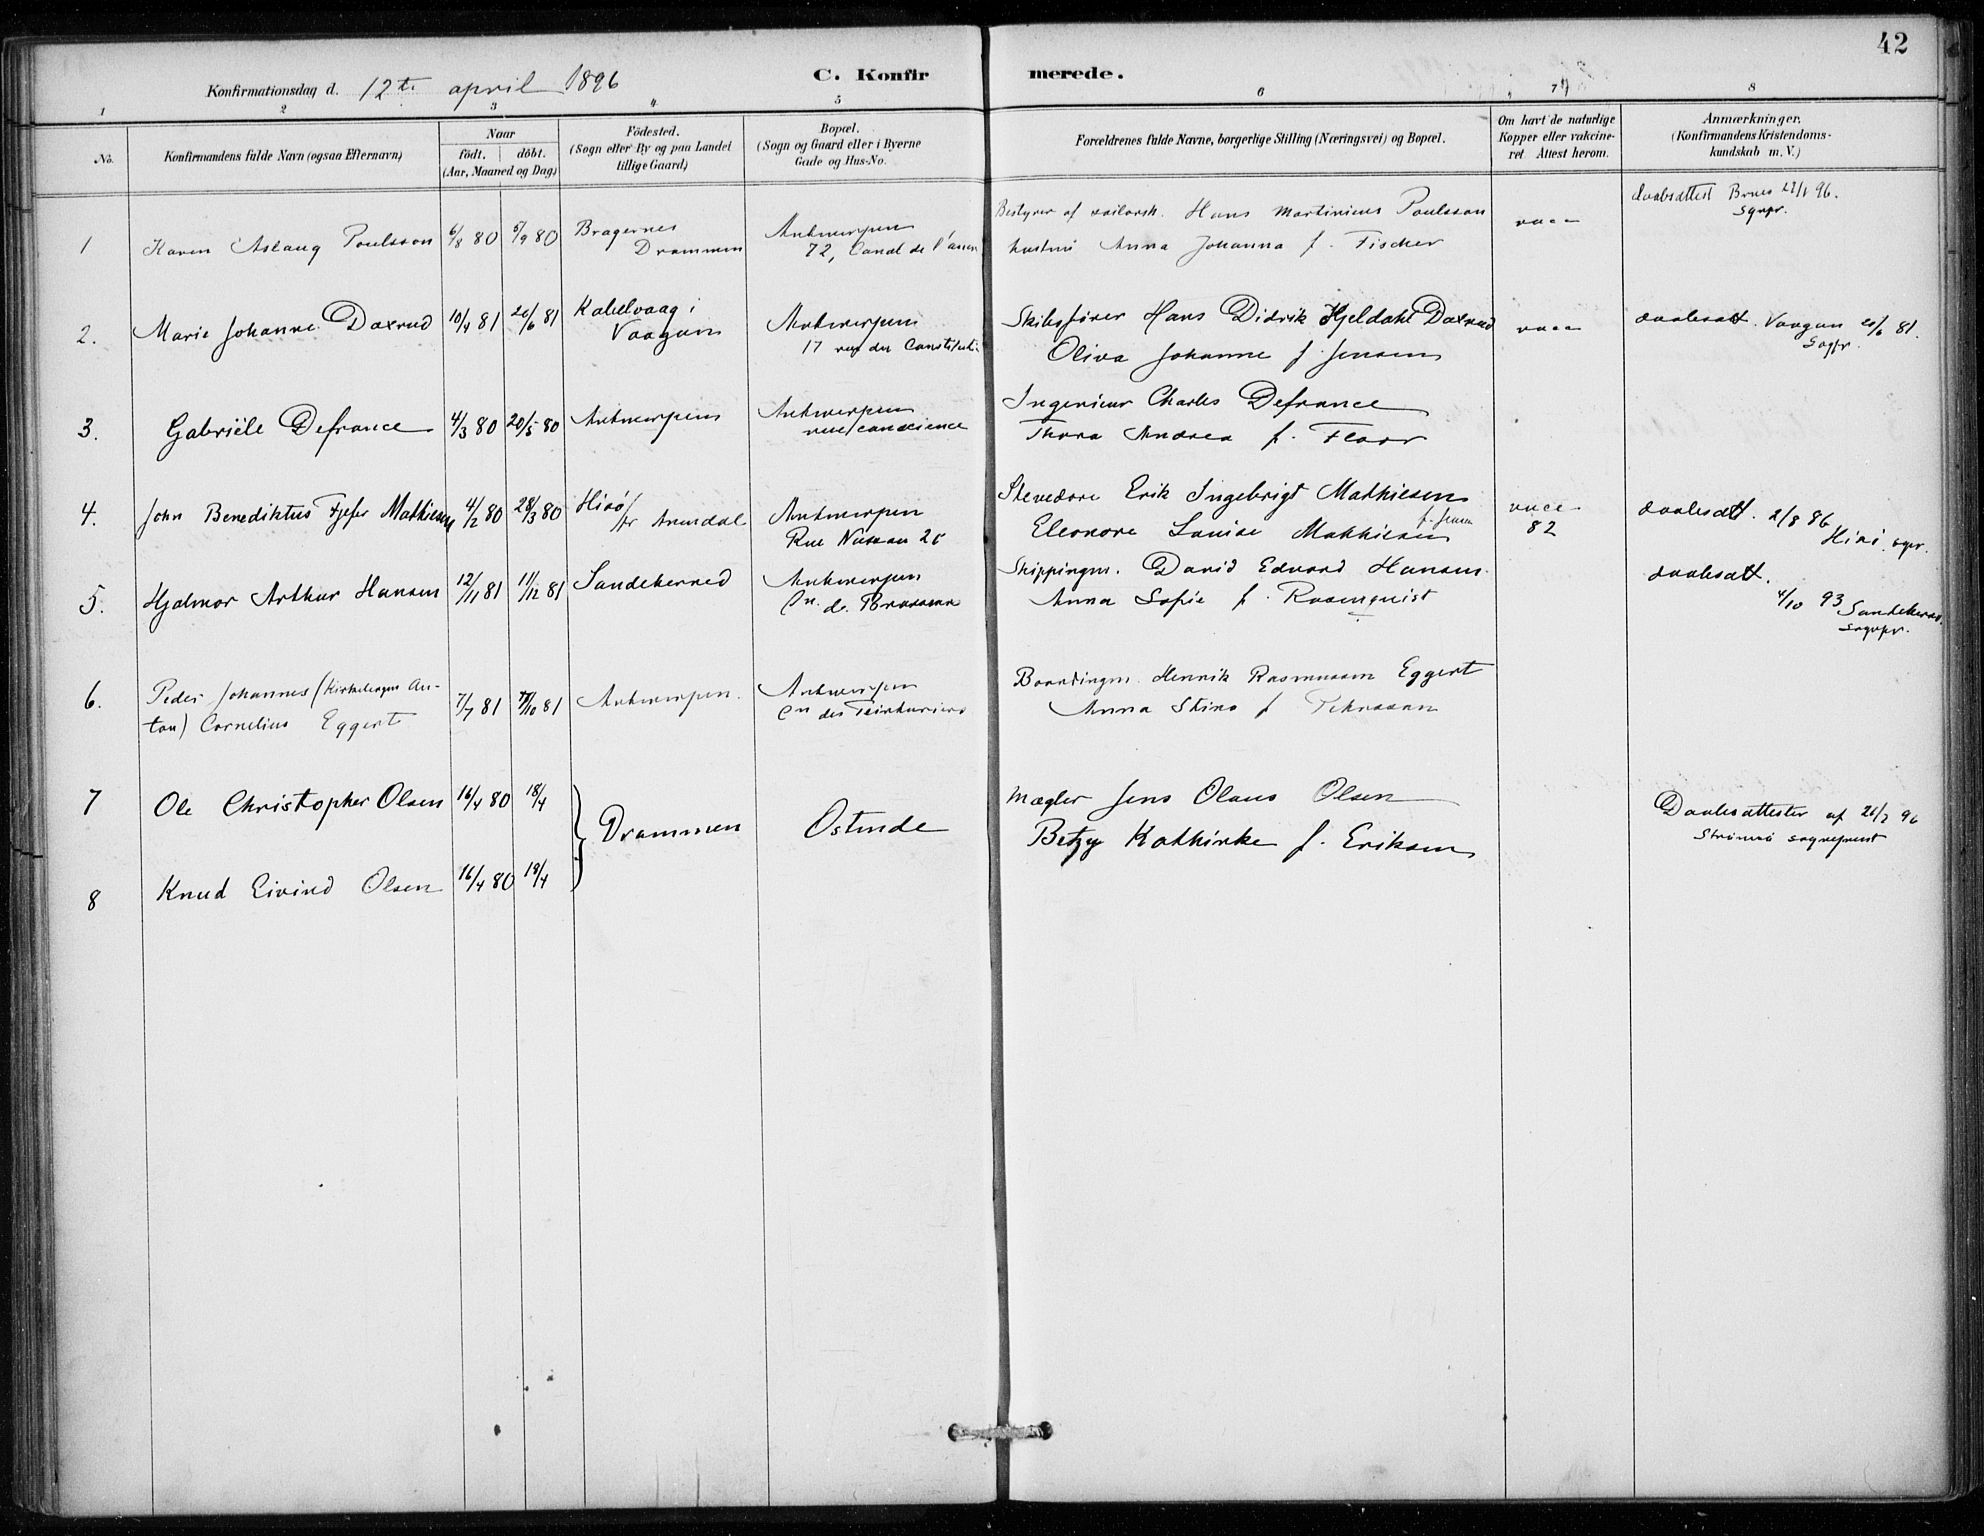 42
Konfirmationsdag d. 12te april 1896
C. Konfirmerede.
1 2 3 4 5 6 7 8
No.
Konfirmandens fulde Navn (ogsaa Efternavn)
Naar
födt. döbt.
(Aar, Maaned og Dag)
Födested.
(Sogn eller By og paa Landet
tillige Gaard)
Bopæl.
(Sogn og Gaard eller i Byerne
Gade og Hus-No.
Forældrenes fulde Navne, borgerlige Stilling (Næringsvei) og Bopæl.
Om havt de naturlige
Kopper eller vakcine-
ret. Attest herom.
Anmærkninger.
(Konfirmandens Kristendoms-
kundskab m. V.)
1 Karen Aslaug Poulsson 6/8 80 5/9 80
Bragernes
Drammen
Antwerpen
72, Canal de l'ancre
Bestyrer af sailorsh. Hans Martinius Poulsson
hustru Anna Johanna f. Fischer
vacc
daabsattest Brnes 96.
Sgnpr.
2. Marie Johanne Daxrud 10/4 81 26/6 81
Kabelvaag i
Vaagan
Antwerpen
17 rue der Constituti
Skibsfører Hans Didrik Hjeldahl Daxrud
Oliva Johanne f. Jensen
vacc
daabsatt. Vaagan 81.
Sogpr.
3. Gabriële Defrance 4/3 80 20/5 80 Antwerpen
Antwerpen
rue conscience
Ingenieur Charles Defrance
Thora Andrea f. Floor
4. John Benediktus Fjefer Mathiesen 4/2 80 28/3 80
Hisø
pr Arendal
Antwerpen
Rue Nassau 20
Stevedore Erik Ingebrigt Mathiesen
Eleonore Louise Mathiesen f. Jensen
vacc
82
daabsatt. 2/8 86
Hisø. sgpr.
5. Hjalmar Arthur Hansen 12/11 81 11/12 81 Sandeherred
Antwerpen
Cn. de
Shippingm. David Edvard Hansen
Anna Sofie f. Rosenquist
daabsatt.
4/10 93 Sandeherred.
sognpr.
6. Peder Johannes (Kirkebogen An-
ton) Cornelius Eggert 7/7 81 7/10 81 Antwerpen.
Antwerpen
Cn des Teinturiers
Boardingm. Henrik Rasmussen Eggert
Anna Stina f
7 Ole Christopher Olsen 16/4 80 18/4
Drammen Ostende
Mægler Jens Olaus Olsen
Betzy Kathinke f. Eriksen
Daabsattester af 96
Strømsø sognepræst
8 Knud Eivind Olsen 16/4 80 18/4